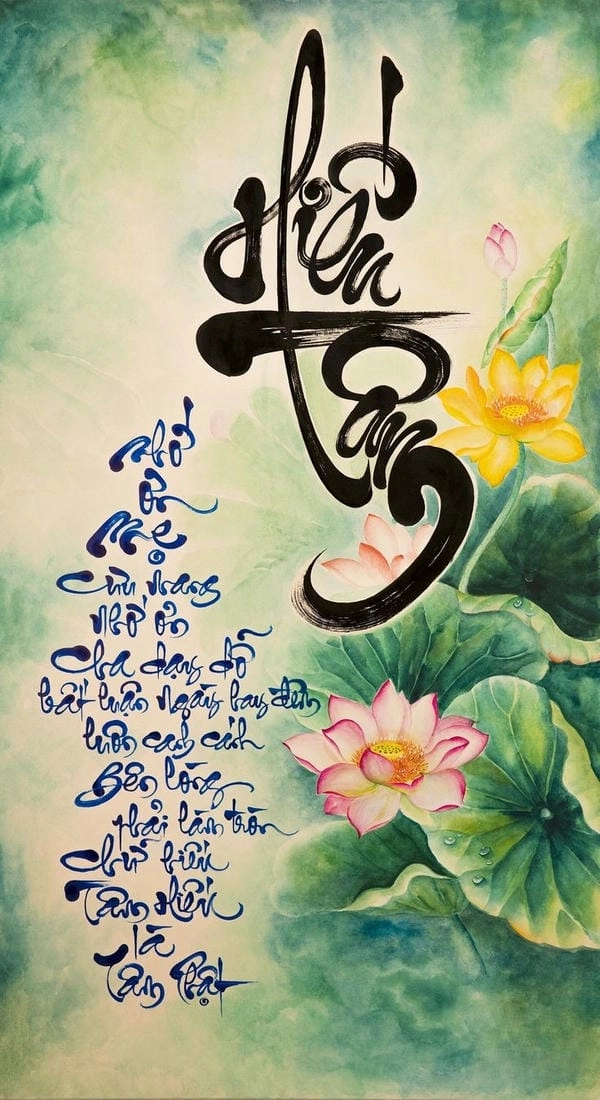 Hiếu
Tâm
Nhớ
ơn
Mẹ
cưu mang
nhớ ơn
cha dạy dỗ
bất luận ngày hay đêm
luôn canh cánh
Bên lòng
phải làm tròn
chữ hiếu
Tâm Hiếu
là
Tâm Phật